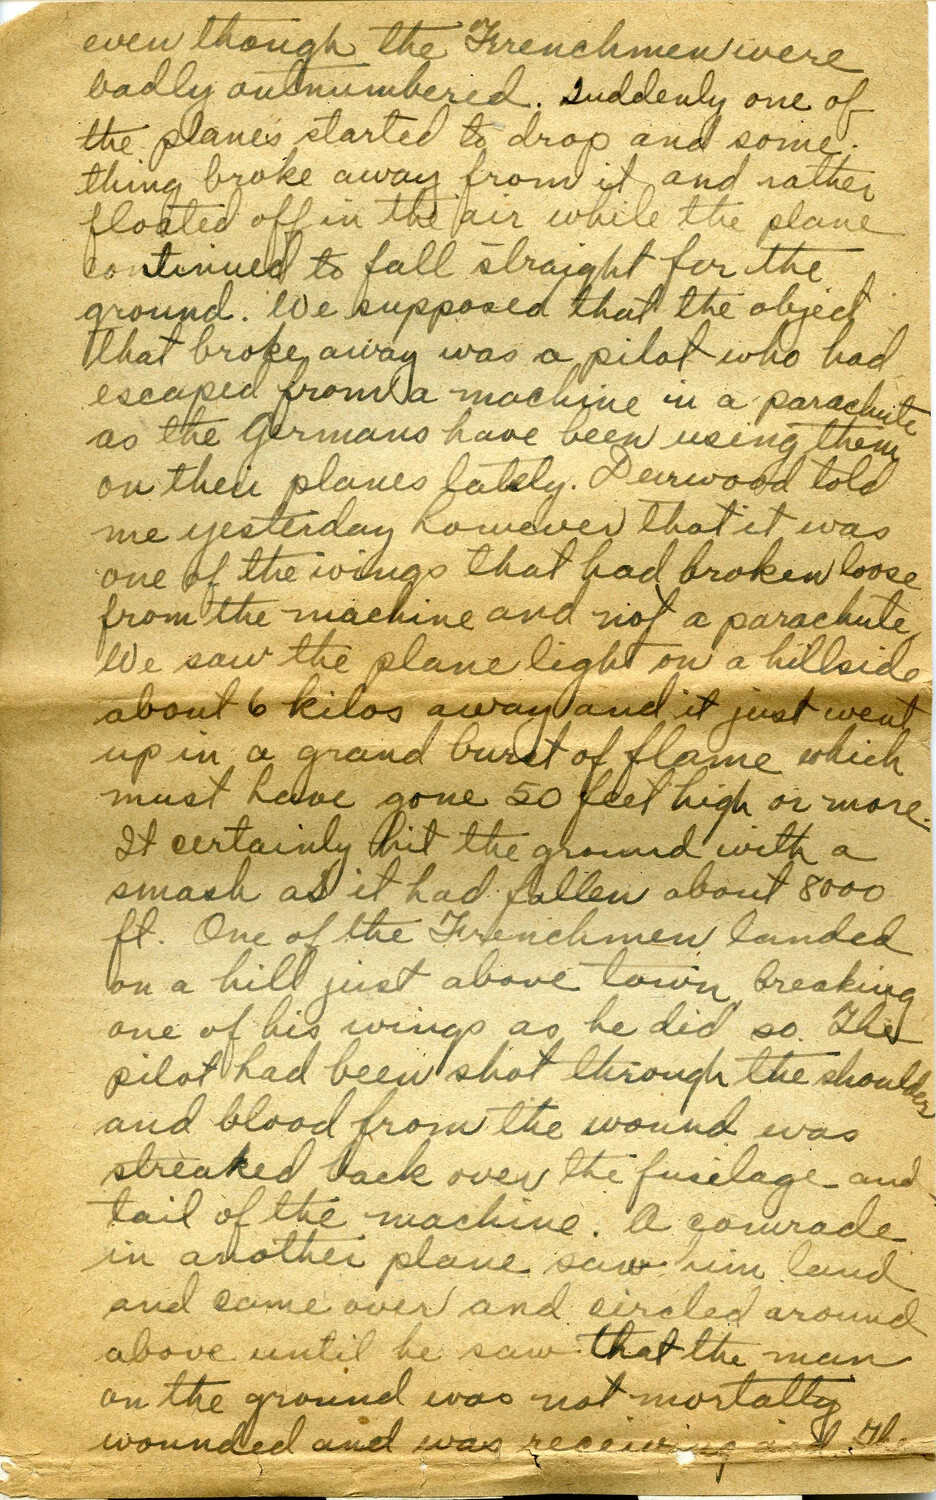 even though the Frenchmen were
badly outnumbered. Suddenly one of
the planes started to drop and some-
thing broke away from it and rather
floated off in the air while the plane
continued to fall straight for the
ground. We supposed that the object
that broke away was a pilot who had
escaped from a machine in a parachute
as the Germans have been using them
on their planes lately. Deurwood told
me yesterday however that it was
one of the wings that had broken loose
from the machine and not a parachute.
We saw the plane light on a hillside
about 6 kilos away and it just went
up in a grand burst of flame which
must have gone 50 feet high or more.
It certainly hit the ground with a
smash as it had fallen about 8000
ft. One of the Frenchmen landed
on a hill just above town, breaking
one of his wings as he did so. The
pilot had been shot through the shoulder
and blood from the wound was
streaked back over the fuselage and
tail of the machine. A comrade
in another plane saw him land
and came over and circled around
above until he saw that the man
on the ground was not mortally
wounded and was receiving The